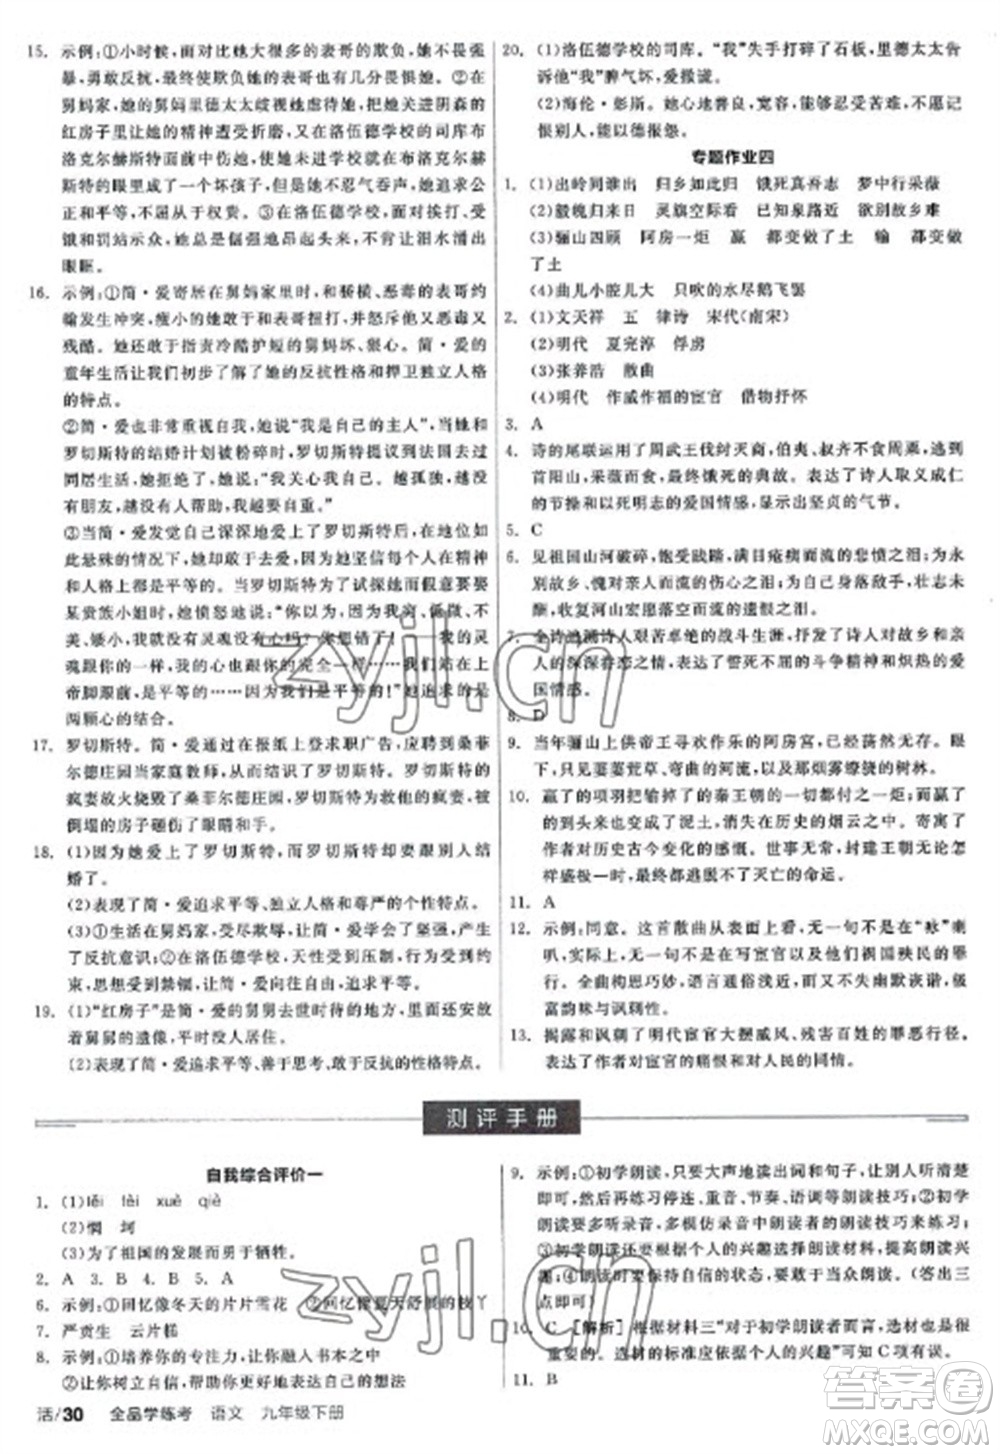 15. 示例:①小时候,面对比她大很多的表哥的欺负,她不畏强
暴,勇敢反抗,最终使欺负她的表哥也有几分怯她。②在
舅妈家,她的舅妈里德太太歧视她,并把她关进阴森的
红房子里让她的精神遭受折磨,但在洛伍德学校的司库布
洛克尔赫斯特的眼里成了
公正和平等,
饿和罚站示众,她总是倔强地昂起头来,不让泪水涌出
眼眶。
16. 示例:①简·爱寄居在舅妈家里时,和骄横、恶毒的表哥约
翰发生冲突,瘦小的她敢于和表哥扭打,并怒斥他的恶毒又
残酷。她还敢于指责冷酷护短的舅妈坏、狠心。简·爱的
童年生活让我们初步了解了她的反抗性格和捍卫独立人格
的特点。
②简·爱也非常重视自我,她说“我是自己的主人”,当
罗切斯特的结婚计划被粉碎时,罗切斯特提议到法国去
同居生活,她拒绝了,她说:“我关心我自己。越孤独,越
没有朋友,越没有人帮助,我越要自重。”
③当简·爱发觉自己深深地爱上了罗切斯特后,在地位如
此悬殊的情况下,她却敢于去爱,因为她坚信人在精神
和人格上都是平等的。当罗切斯特为了试探她而假意要娶
某贵族小姐时,她愤怒地说:“你以为我贫穷、低微、不
美、矮小,我就没有灵魂,没有心吗?你想错了! 我的灵
魂跟你的一样,我的心也跟你的完全一样……我们站在上
帝脚跟前,是平等的……我们是平等的!”她追求的是
两颗心的结合。
17. 罗切斯特。简·爱通过在报纸上登求职广告,应聘到桑菲
尔德庄园当家庭教师,从而结识了罗切斯特。罗切斯特的
疯妻放火烧毁了桑菲尔德庄园。罗切斯特为救他的疯妻,被
倒塌的房子砸伤了眼睛和手。
18. (1)因为她爱上了罗切斯特,而罗切斯特却要跟别人结
婚了。
(2)表现了简·爱追求平等、独立人格和尊严的个性特点。
(3)①生活在舅妈家,受尽欺辱,与强势抗争,开始有
了反抗意识;②在洛伍德学校,不甘受到压制,反抗约
束,嘲笑压迫,向往自由,追求平等。
19. (1)“红房子”是简·爱的舅舅去世时待的地方,里面安放
着舅舅的遗像,平时没人居住。
(2)表现了简·爱追求平等、敢于斗争、敢于反抗的性格特点。
20. (1)洛伍德学校的司库。“我”失手打碎了石板,里德太太告
诉他“我”脾气坏,爱撒谎。
(2)海伦·彭斯。她心地善良,宽容,能够忍受苦难,不愿记
恨别人,能以德报怨。
专题作业四
1. (1)出岭同谁出 归乡如此归 饿死真吾志 梦中行采薇
(2)毅魄归来日 灵旗空际看 已知泉路近 欲别故乡难
(3)骊山四顾 阿房一炬 赢 都变做了土 输 都变做
了土
(4)曲儿小腔儿大 只吹的水尽鹅飞罢
2. (1)文天祥 五 律诗 宋代(南宋)
(2)明代 夏完淳 俘虏
(3)张养浩 散曲
(4)明代 作威作福的宦官 借物抒怀
3. A
4. 诗的尾联运用了周武王伐纣灭商,伯夷、叔齐不食周粟,在
首阳山,采薇而食,最终饿死的典故。表达了诗人取义成仁
的节操和以死明志的爱国情感,显示出坚贞的气节。
5. C
6. 见祖国山河破碎,饱受践踏,满目疮痍而流的悲愤之泪;为永
别故乡、愧对亲人而流的伤心之泪;自己身落敌手,壮志未
酬,收复河山宏愿落空而流的遗恨之泪。
7. 全诗追溯诗人艰苦卓绝的战斗生涯,抒发了诗人对故乡和亲
人的深深眷恋之情,表达了誓死不屈的斗争精神和炽热的爱
国情感。
8. D
9. 当年骊山上供帝王寻欢作乐的阿房宫,已经荡然无存。眼
下,只见萋萋荒草、弯曲的河流,以及那烟雾缭绕的树林。
10. 赢了的项羽把输掉了的秦王朝的一切都付之一炬;而赢了
的也变成了泥土,消失在历史的烟云之中。寄寓着
作者对历史古今变化的感慨。世事无常,封建王朝无论
怎样盛极一时,最终都逃脱不了灭亡的命运。
11. A
12. 示例:同意。这首散曲从表面上看,无一句不是在“咏”喇
叭,实际上,无一句不是在写宦官以及他们祸国殃民的罪
行。全曲构思巧妙,语言通俗活泼,不失幽默诙谐,极
富韵味与讽刺性。
13. 揭露和讽刺了明代宦官大摆威风、残害百姓的罪恶行径。
表达了作者对宦官的痛恨和对人民的同情。
测评手册
自我综合评价一
1. (1)lěi lèi xuè qiè
(2)惘 坷
(3)为了祖国的发展而勇于牺牲。
2. A 3. B 4. B 5. A
6. 示例:①回忆像冬天的片片雪花 ②回忆像夏天舒展的枝丫
7. 严贡生 云片糕
8. 示例:①培养你的专注力,让你融入书本之中
②让你树立自信,发现阅读的乐趣
9. 示例:①初学朗读,只要大声地把词语和句子,能让人听清楚
即可,然后再练习停连、重音、节奏、语调等朗读技巧;②初学
朗读者要多听录音、多模仿朗读者的朗读技巧与情感
;③初学朗读者要根据个人的兴趣选择朗读材料,提高朗读兴
趣;④朗读者要保持自信的状态,要敢于当众朗读。(答出三
点即可)
10. C 【解析】根据材料三“对于初学朗读者而言,选材也是很
重要的。选材的标准应依据个人的兴趣”可知C项有误。
11. B
活/30 全品学练考 语文 九年级下册
zyjl.cn
zyjl.cn
答案圈
MXQE.COM